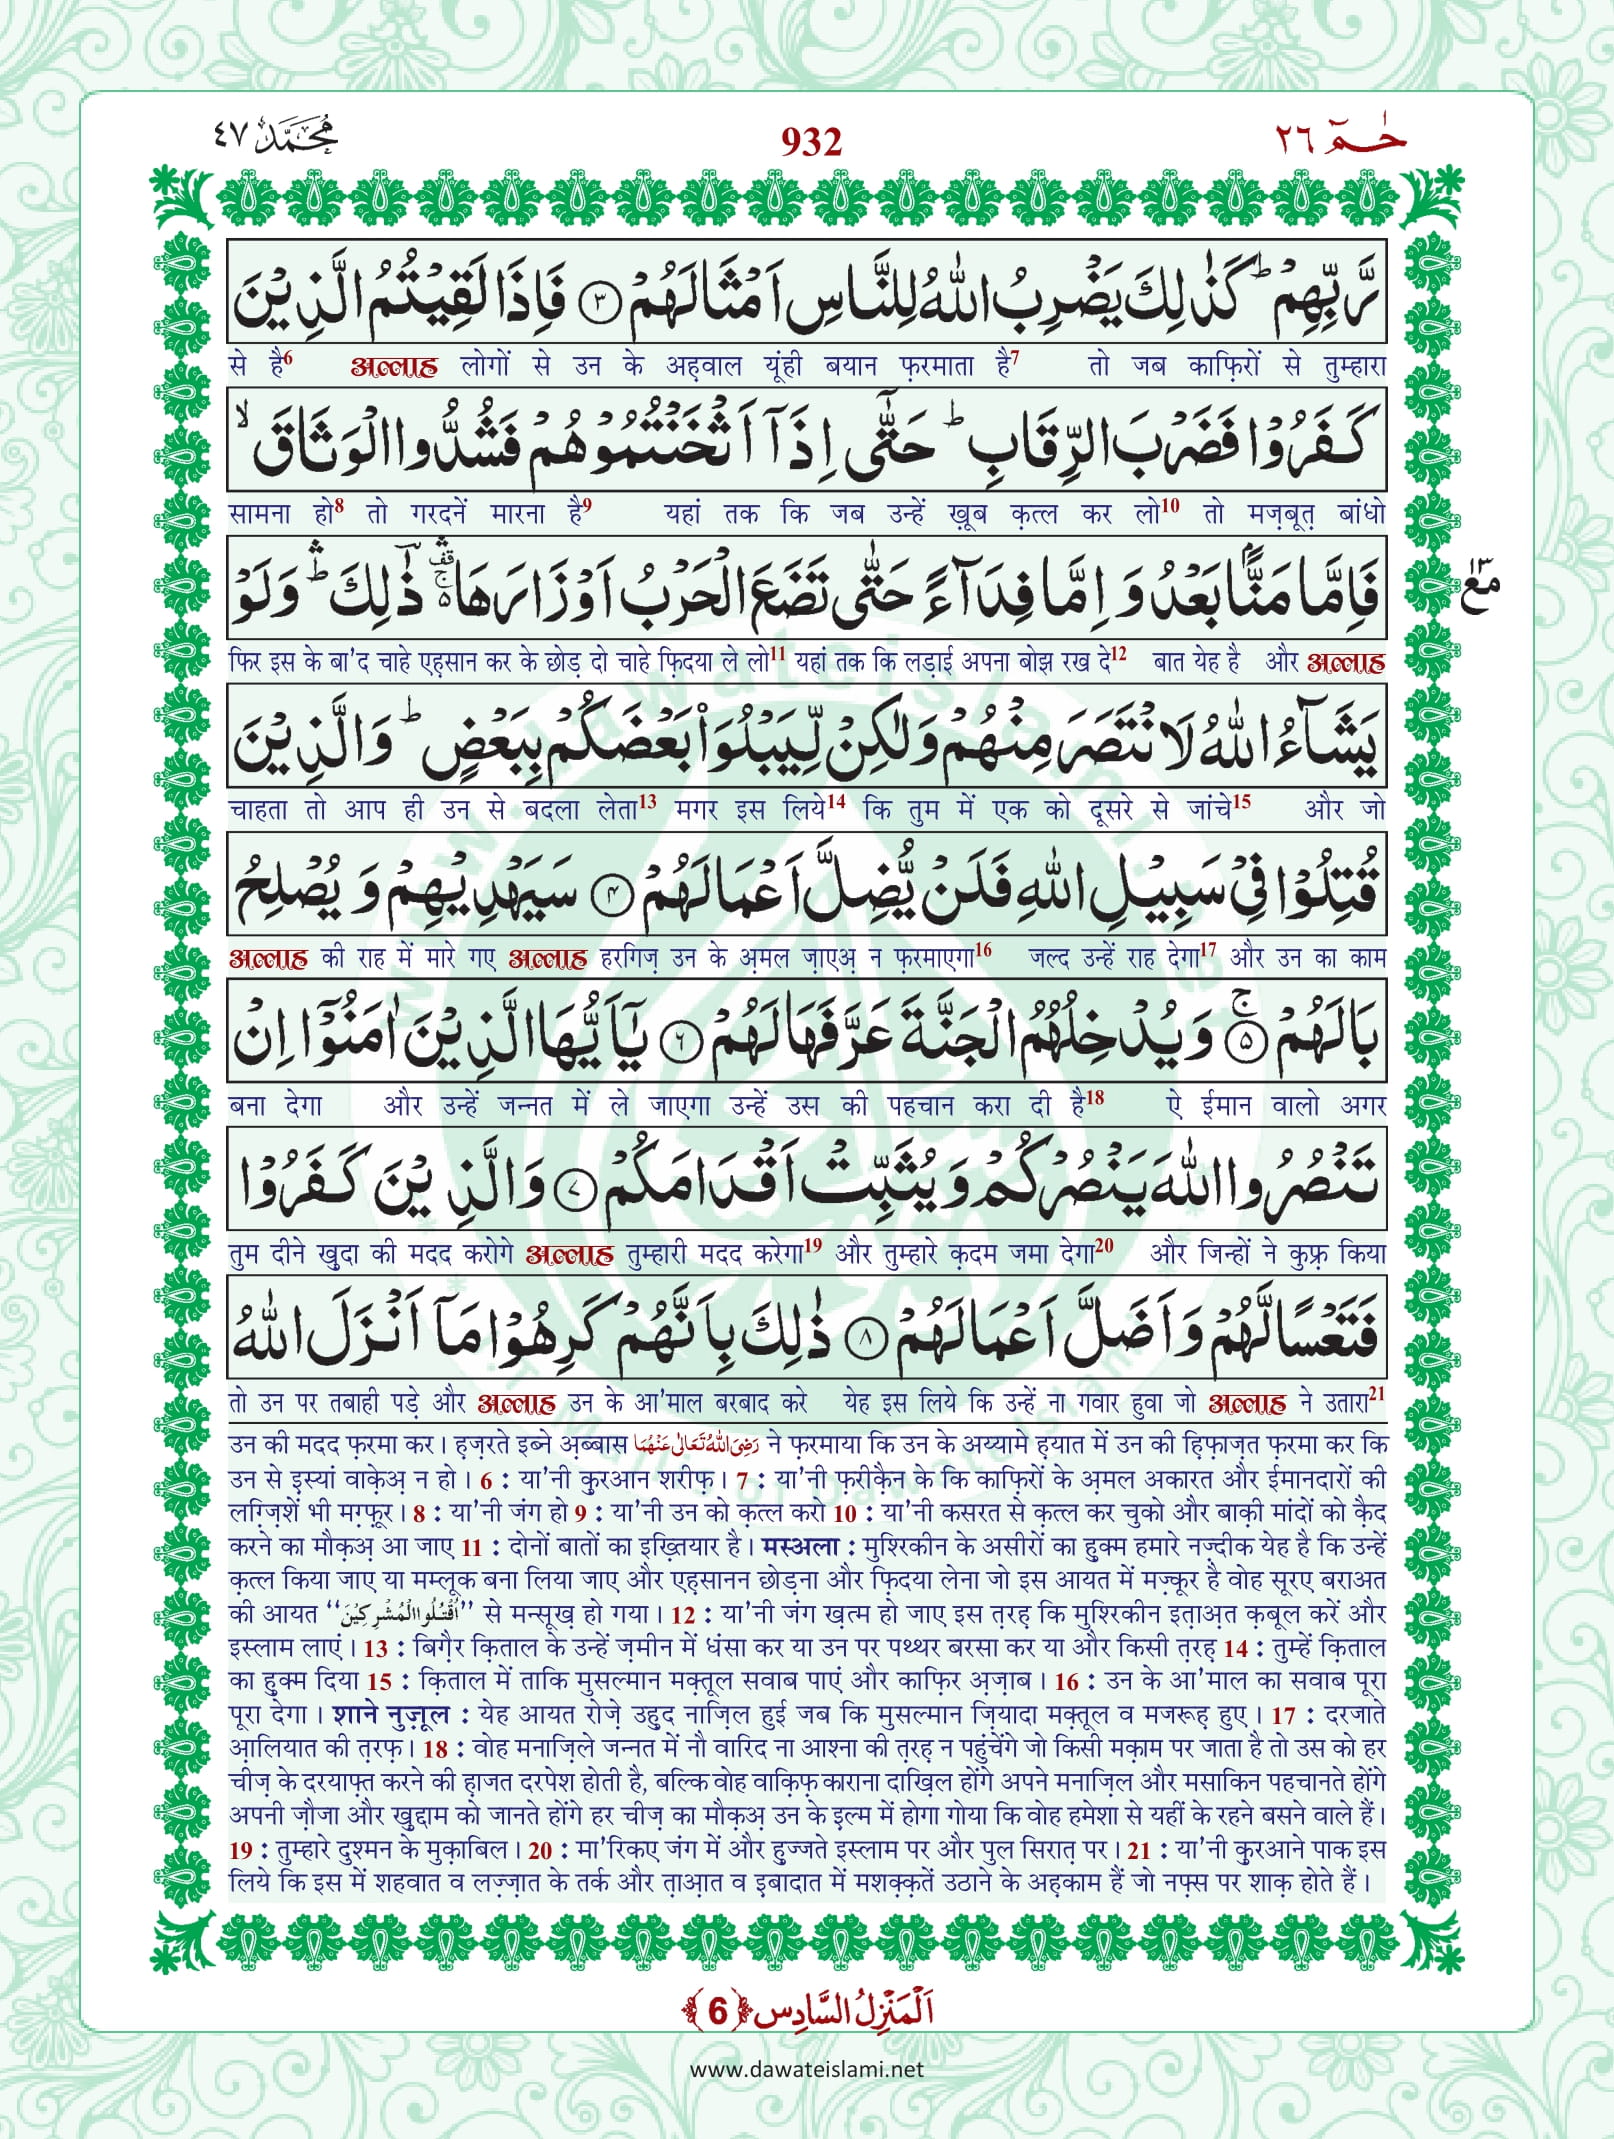 محمد ٤٧
932
حٰمٓ ٢٦
رَّبِّهِمْ ؕ كَذٰلِكَ يَضْرِبُ اللّٰهُ لِلنَّاسِ اَمْثَالَهُمْ ﴿۳﴾ فَاِذَا لَقِيْتُمُ الَّذِيْنَ
से है6 अल्लाह लोगों से उन के अह़वाल यूंही बयान फ़रमाता है7 तो जब काफ़िरों से तुम्हारा
كَفَرُوْا فَضَرْبَ الرِّقَابِ ؕ حَتّٰۤى اِذَاۤ اَثْخَنْتُمُوْهُمْ فَشُدُّوا الْوَثَاقَ ۙ
सामना हो8 तो गरदनें मारना है9 यहां तक कि जब उन्हें ख़ूब क़त्ल कर लो10 तो मज़बूत़ बांधो
فَاِمَّا مَنًّۢا بَعْدُ وَ اِمَّا فِدَآءً حَتّٰى تَضَعَ الْحَرْبُ اَوْزَارَهَا ۛ۫ ذٰلِكَ ؕۛ وَلَوْ
फिर इस के बा'द चाहे एह़सान कर के छोड़ दो चाहे फ़िदया ले लो11 यहां तक कि लड़ाई अपना बोझ रख दे12 बात येह है और अल्लाह
يَشَآءُ اللّٰهُ لَانْتَصَرَ مِنْهُمْ وَلٰكِنْ لِّيَبْلُوَا۠ بَعْضَكُمْ بِبَعْضٍ ؕ وَالَّذِيْنَ
चाहता तो आप ही उन से बदला लेता13 मगर इस लिये14 कि तुम में एक को दूसरे से जांचे15 और जो
قُتِلُوْا فِيْ سَبِيْلِ اللّٰهِ فَلَنْ يُّضِلَّ اَعْمَالَهُمْ ﴿۴﴾ سَيَهْدِيْهِمْ وَ يُصْلِحُ
अल्लाह की राह में मारे गए अल्लाह हरगिज़ उन के अ़मल ज़ाएअ़ न फ़रमाएगा16 जल्द उन्हें राह देगा17 और उन का काम
بَالَهُمْ ﴿۵﴾ۚ وَيُدْخِلُهُمُ الْجَنَّةَ عَرَّفَهَا لَهُمْ ﴿۶﴾ يٰۤاَيُّهَا الَّذِيْنَ اٰمَنُوْۤا اِنْ
बना देगा और उन्हें जन्नत में ले जाएगा उन्हें उस की पहचान करा दी है18 ऐ ईमान वालो अगर
تَنْصُرُوا اللّٰهَ يَنْصُرْكُمْ وَيُثَبِّتْ اَقْدَامَكُمْ ﴿۷﴾ وَالَّذِيْنَ كَفَرُوْا
तुम दीने ख़ुदा की मदद करोगे अल्लाह तुम्हारी मदद करेगा19 और तुम्हारे क़दम जमा देगा20 और जिन्हों ने कुफ़्र किया
فَتَعْسًا لَّهُمْ وَاَضَلَّ اَعْمَالَهُمْ ﴿۸﴾ ذٰلِكَ بِاَنَّهُمْ كَرِهُوْا مَاۤ اَنْزَلَ اللّٰهُ
तो उन पर तबाही पड़े और अल्लाह उन के आ'माल बरबाद करे येह इस लिये कि उन्हें ना गवार हुवा जो अल्लाह ने उतारा21
उन की मदद फ़रमा कर। ह़ज़रते इब्ने अ़ब्बास رَضِىَ اللّٰهُ تَعَالٰى عَنْهُمَا ने फ़रमाया कि उन के अय्यामे ह़यात में उन की ह़िफ़ाज़त फ़रमा कर कि
उन से इस़्यां वाक़ेअ़ न हो। 6 : या'नी क़ुरआन शरीफ़। 7 : या'नी फ़रीक़ैन के कि काफ़िरों के अ़मल अकारत और ईमानदारों की
लग़्ज़िशें भी मग़्फ़ूर। 8 : या'नी जंग हो 9 : या'नी उन को क़त्ल करो 10 : या'नी कसरत से क़त्ल कर चुको और बाक़ी मांदों को क़ैद
करने का मौक़अ़ आ जाए 11 : दोनों बातों का इख़्तियार है। मस्अला : मुश्रिकीन के असीरों का हुक्म हमारे नज़्दीक येह है कि उन्हें
क़त्ल किया जाए या मम्लूक बना लिया जाए और एह़सानन छोड़ना और फ़िदया लेना जो इस आयत में मज़्कूर है वोह सूरए बराअत
की आयत ‘‘اُقْتُلُوا الْمُشْرِكِيْنَ’’ से मन्सूख़ हो गया। 12 : या'नी जंग ख़त्म हो जाए इस त़रह़ कि मुश्रिकीन इत़ाअ़त क़बूल करें और
इस्लाम लाएं। 13 : बिग़ैर क़िताल के उन्हें ज़मीन में धंसा कर या उन पर पथ्थर बरसा कर या और किसी त़रह़ 14 : तुम्हें क़िताल
का हुक्म दिया 15 : क़िताल में ताकि मुसल्मान मक़्तूल सवाब पाएं और काफ़िर अ़ज़ाब। 16 : उन के आ'माल का सवाब पूरा
पूरा देगा। शाने नुज़ूल : येह आयत रोज़े उहुद नाज़िल हुई जब कि मुसल्मान ज़ियादा मक़्तूल व मजरूह़ हुए। 17 : दरजाते
आ़लियात की त़रफ़। 18 : वोह मनाज़िले जन्नत में नौ वारिद ना आश्ना की त़रह़ न पहुंचेंगे जो किसी मक़ाम पर जाता है तो उस को हर
चीज़ के दरयाफ़्त करने की ह़ाजत दरपेश होती है, बल्कि वोह वाक़िफ़ काराना दाख़िल होंगे अपने मनाज़िल और मसाकिन पहचानते होंगे
अपनी ज़ौजा और ख़ुद्दाम को जानते होंगे हर चीज़ का मौक़अ़ उन के इल्म में होगा गोया कि वोह हमेशा से यहीं के रहने बसने वाले हैं।
19 : तुम्हारे दुश्मन के मुक़ाबिल। 20 : मा'रिकए जंग में और हुज्जते इस्लाम पर और पुल सिरात़ पर। 21 : या'नी क़ुरआने पाक इस
लिये कि इस में शहवात व लज़्ज़ात के तर्क और त़ाआ़त व इबादात में मशक़्क़तें उठाने के अह़काम हैं जो नफ़्स पर शाक़ होते हैं।
اَلْمَنْزِلُ السَّادِس ﴿6﴾
www.dawateislami.net